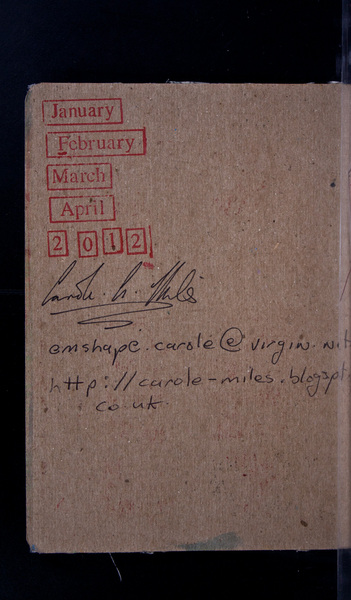 January
February
March
April
2012
Carole. A. Miles
emshape.carole@virgin.net
http://carole-miles.blogspt.
co.uk.